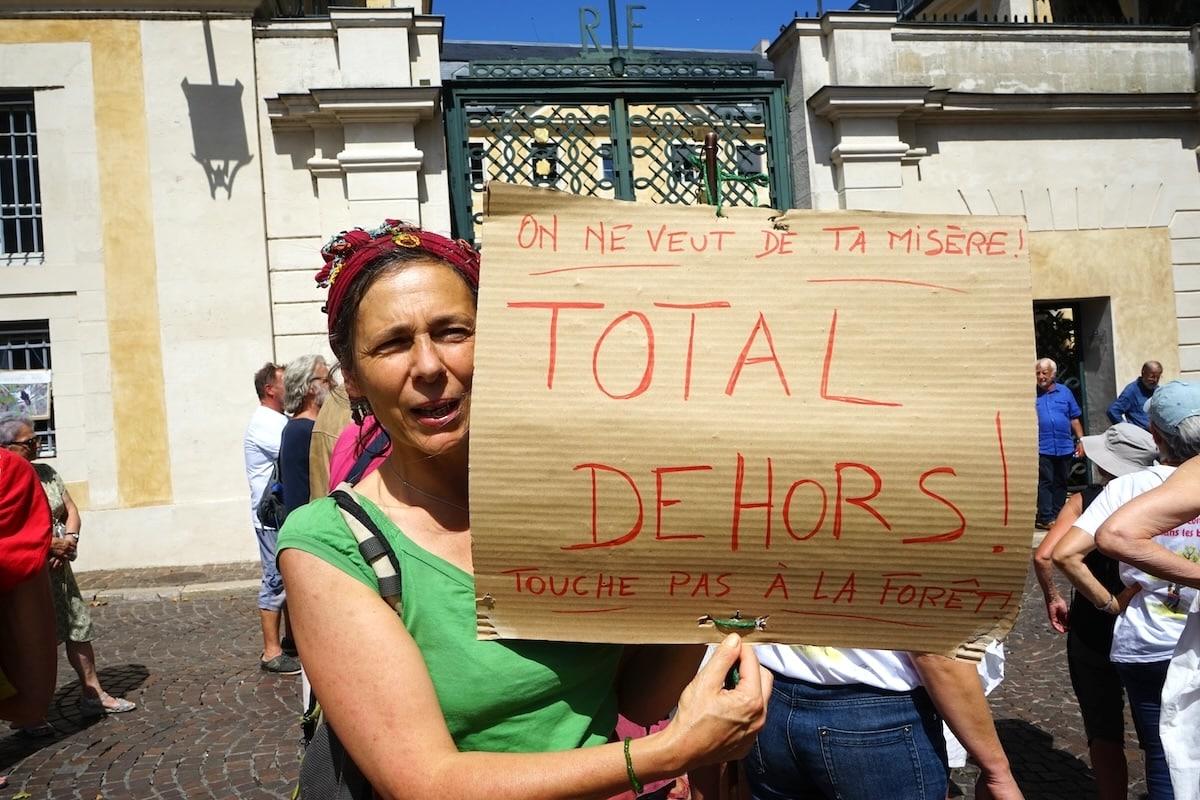 R F
ON NE VEUT DE TA MISÈRE!
TOTAL
DEHORS!
TOUCHE PAS À LA FORÊT!